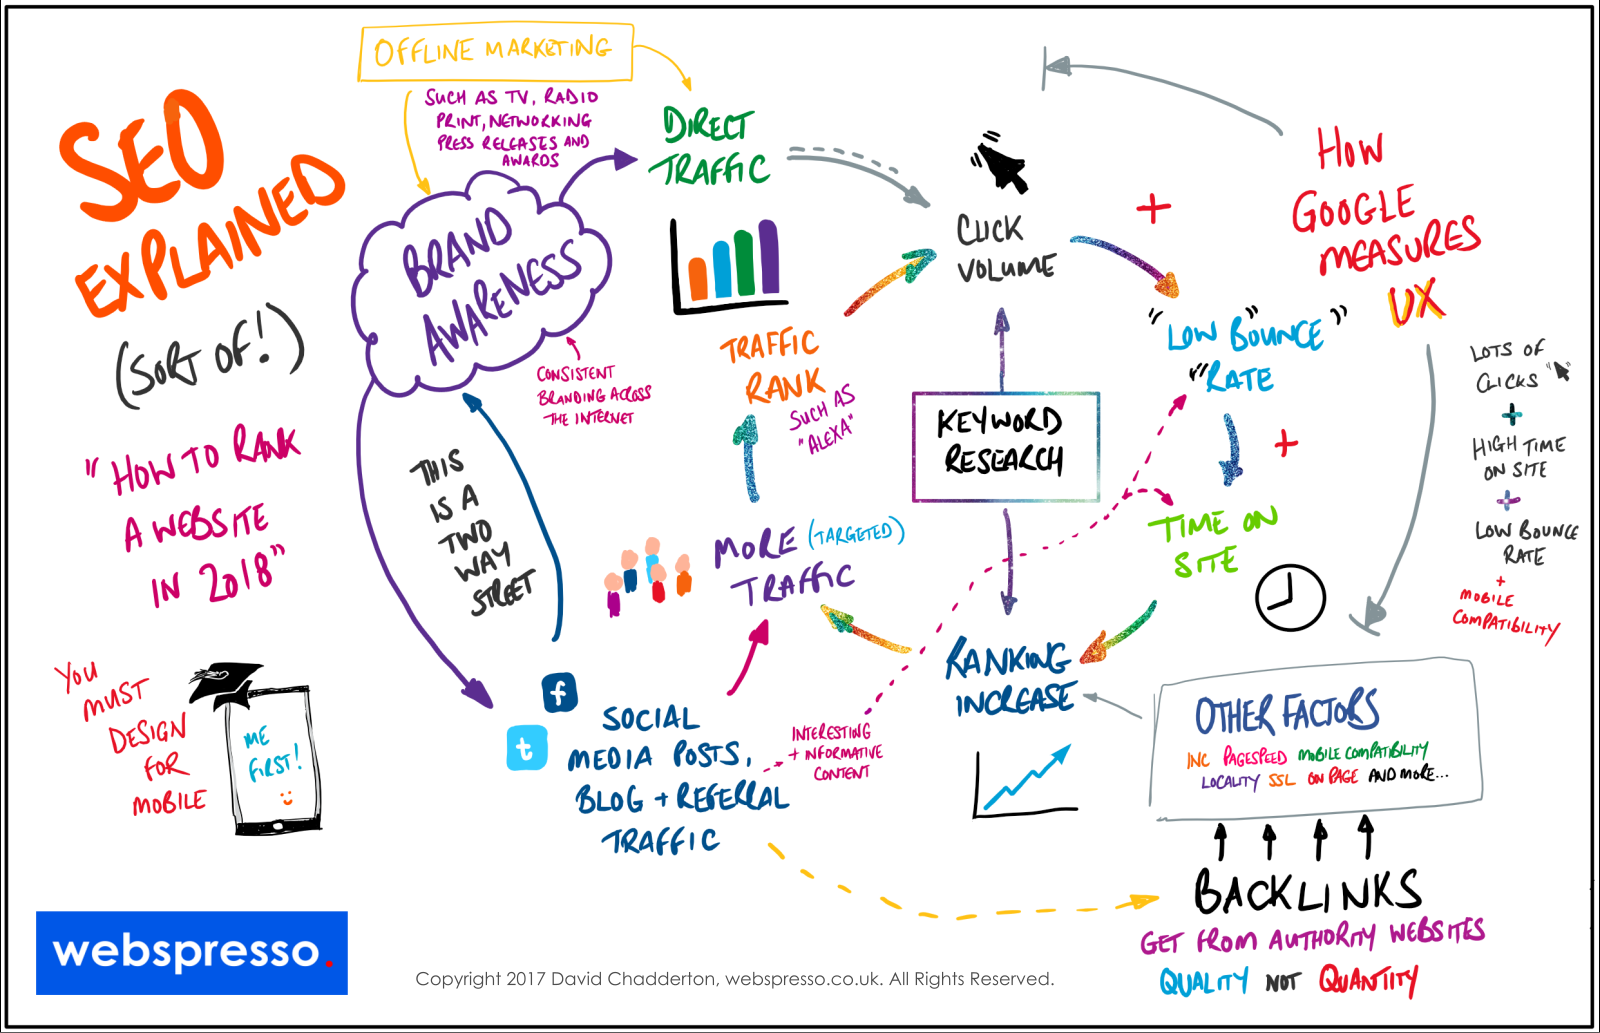 SEO
EXPLAINED
(SORT OF!)
"HOW TO RANK
A WEBSITE
IN 2018"
YOU
MUST
DESIGN
FOR
MOBILE
ME
FIRST!
webspresso.
OFFLINE MARKETING
SUCH AS TV, RADIO
PRINT, NETWORKING
PRESS RELEASES AND
AWARDS
BRAND
AWARENESS
CONSISTENT
BRANDING ACROSS
THE INTERNET
THIS
IS A
TWO
WAY
STREET
DIRECT
TRAFFIC
TRAFFIC
RANK
SUCH AS
"ALEXA"
MORE (TARGETED)
TRAFFIC
f
t
SOCIAL
MEDIA POSTS,
BLOG + REFERRAL
TRAFFIC
INTERESTING
+ INFORMATIVE
CONTENT
CLICK
VOLUME
KEYWORD
RESEARCH
RANKING
INCREASE
+
"LOW BOUNCE"
"RATE
+
TIME ON
SITE
HOW
GOOGLE
MEASURES
UX
LOTS OF
CLICKS " "
+
HIGH TIME
ON SITE
+
LOW BOUNCE
RATE
+
MOBILE
COMPATIBILITY
OTHER FACTORS
INC PAGESPEED MOBILE COMPATIBILITY
LOCALITY SSL ON PAGE AND MORE...
BACKLINKS
GET FROM AUTHORITY WEBSITES
QUALITY NOT QUANTITY
Copyright 2017 David Chadderton, webspresso.co.uk. All Rights Reserved.